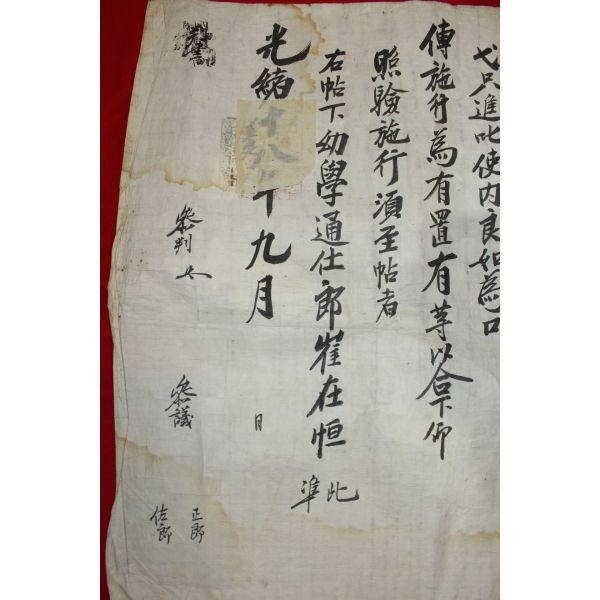 弋只進叱使內良如為
傳施行為有置有等以合下仰
照驗施行須至帖者
右帖下幼學通仕郎崔在恒
準此
光緖十八年九月 日
判書
參判
參議
正郎
佐郎